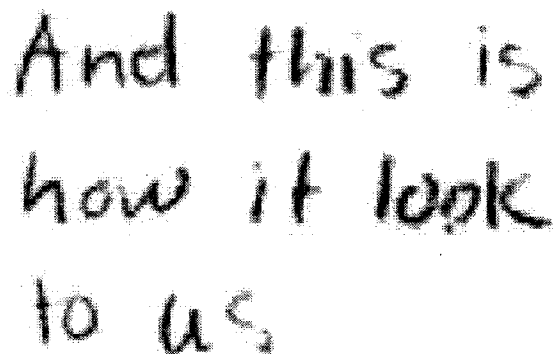 And this is
how it look
to us